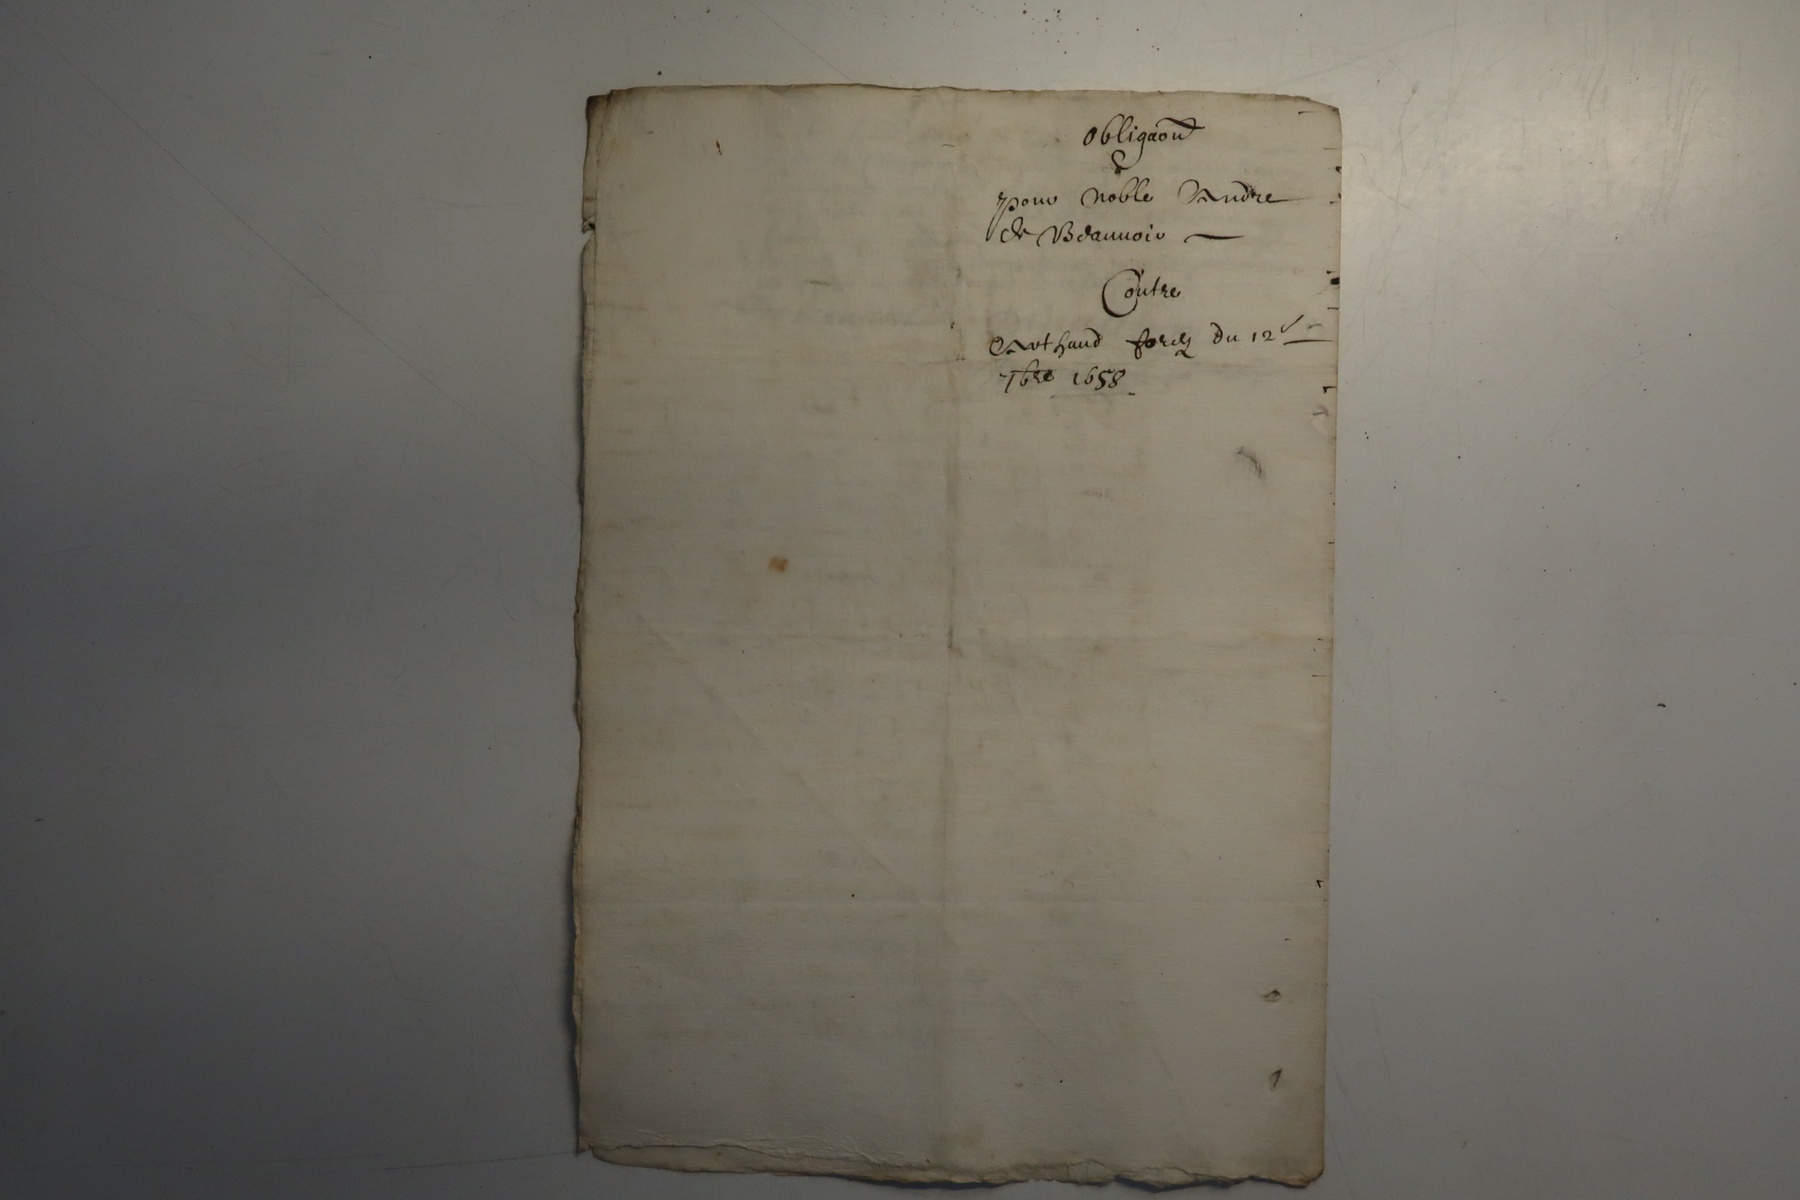 Obligaon
pour noble Andre
de Beauvoir
Contre
Arthaud du 12
7bre 1658